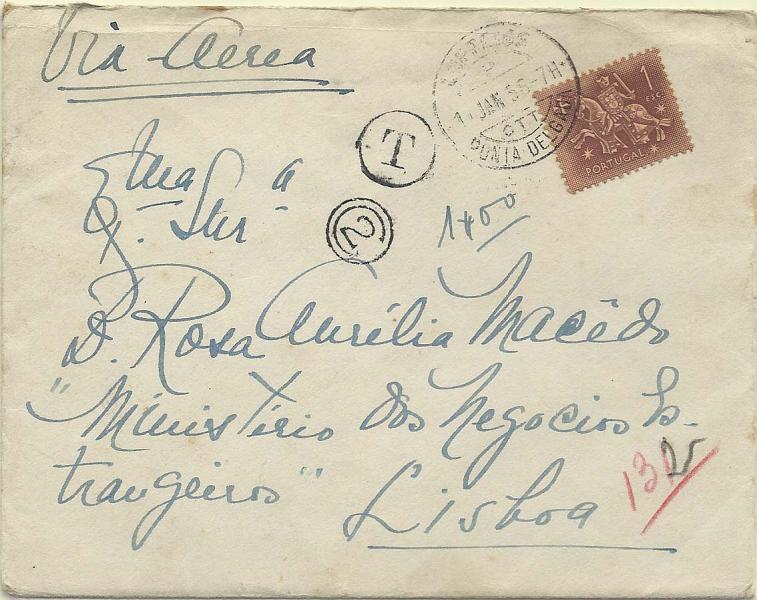 Via Aerea
CORREIOS
1. JAN 56-7H.
CTT
PONTA DELGADA
1
ESC.
PORTUGAL
T
2
1$00
Exma
Sra
D. Rosa Aurélia Macêdo
"Ministerio dos Negocios Es-
trangeiros"
Lisboa
13